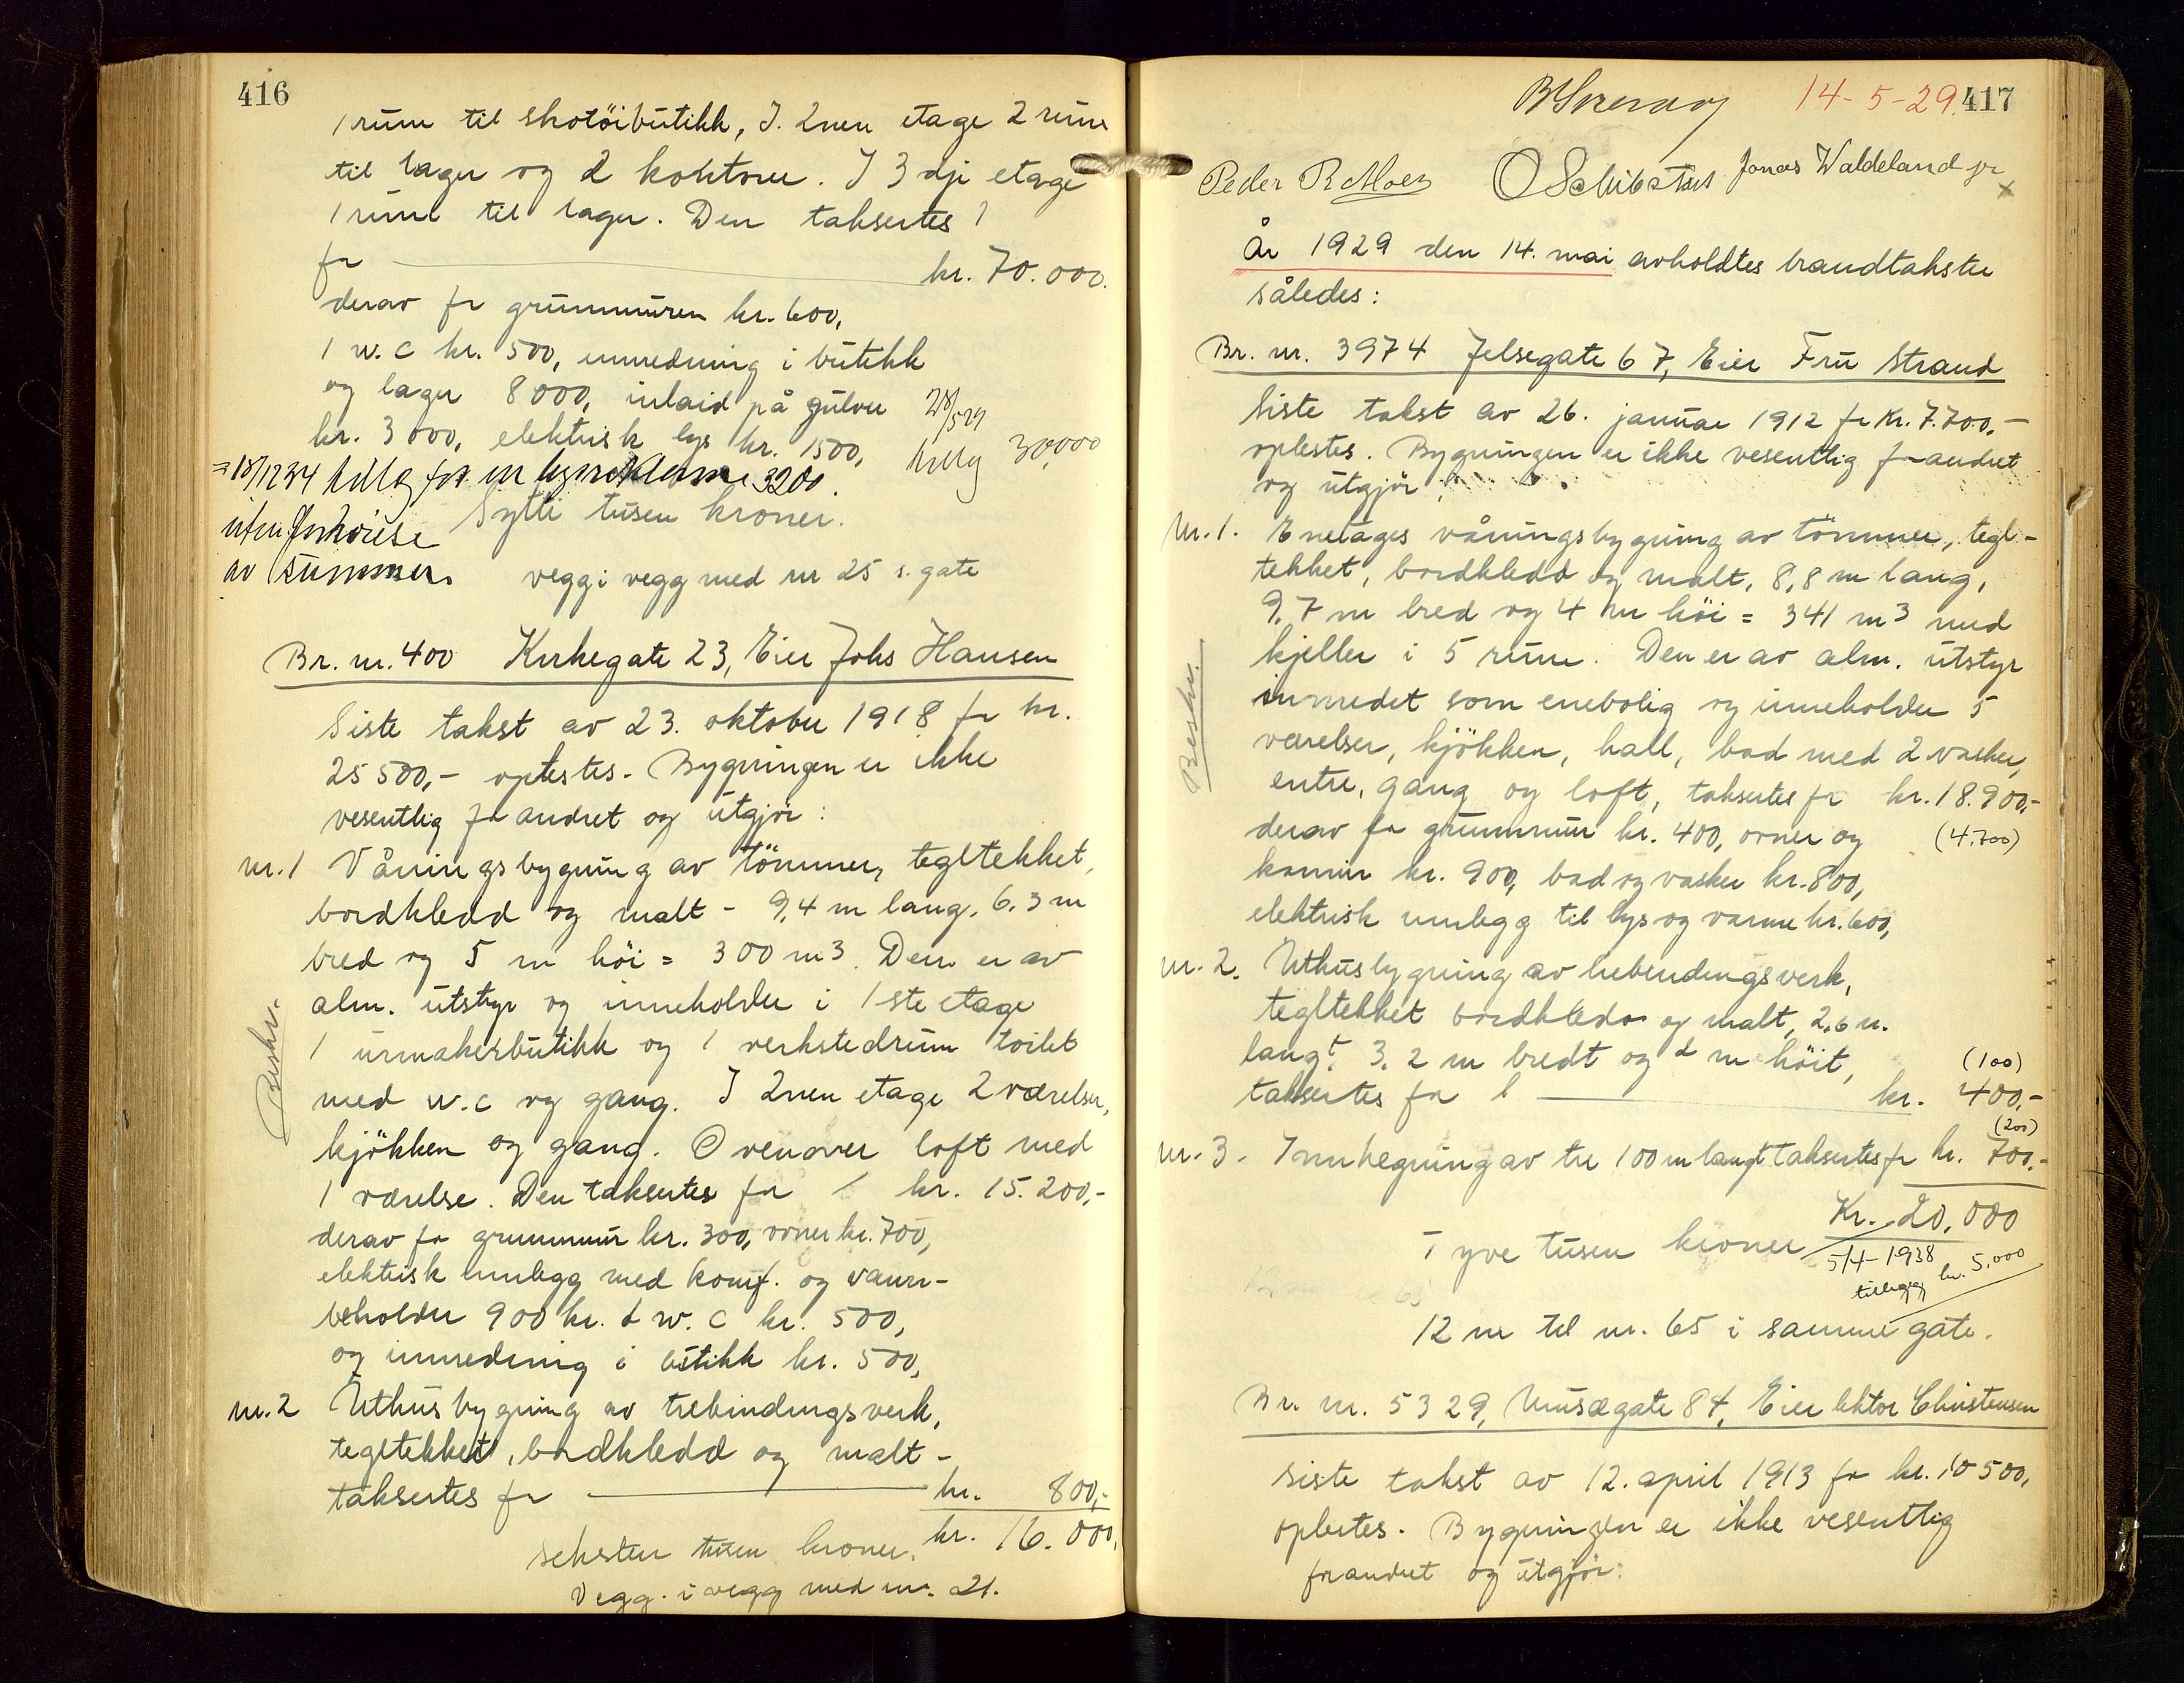 416
1 rum til skotöibutikk, I. 2nen etage 2 rum
til lager og 2 kontorer. I 3dje etage
1 rum til lager. Den taksertes
for kr. 70.000.
derav for grunnmuren kr. 600,
1 w.c kr. 500, innredning i butikk
og lager 8000, inlaid på gulver 28/5 29
kr. 3000, elektrisk lys kr. 1500, tilleg 30,000
=18/12 34 tilleg for en lysreklame 3200.
uten forhöielse
av summen.
Sytti tusen kroner.
vegg i vegg med nr 25 s. gate
Br. nr. 400 Kirkegate 23, Eier Johs Hansen
Siste takst av 23. oktober 1918 for kr.
25500,- oplestes. Bygningen er ikke
vesentlig forandret og utgjör:
nr. 1 Våningsbygning av tömmer, tegltekket,
bordkledd og malt - 9,4 m lang, 6.3 m
bred og 5 m höi = 300 m3. Den er av
Beskr.
alm. utstyr og inneholder i 1ste etage
1 urmakerbutikk og 1 verkstedrum toilet
med w.c og gang. I 2nen etage 2 værelser,
kjökken og gang. Ovenover loft med
1 værelse. Den taksertes for kr. 15.200,-
derav for grunnmur kr. 300, ovner kr. 700,
elektrisk innlegg med komf. og vann-
beholder 900 kr. 1 w.c kr. 500,
og innredning i butikk kr. 500,
nr. 2 Uthusbygning av trebindingsverk,
tegltekket, bordkledd og malt -
taksertes for kr. 800,-
kr. 16.000,
seksten tusen kroner.
Vegg i vegg med nr. 21.
14-5-29. 417
Peder R. Moen O Schibstad Jonas Waldeland jr
x
År 1929 den 14. mai avholdtes brandtakster
således:
Br. nr. 3974 Jelsegate 67, Eier Fru Strand
Siste takst av 26. januar 1912 for kr. 7.700.-
oplestes. Bygningen er ikke vesentlig forandret
og utgjör:
nr. 1. Enetages våningsbygning av tömmer, tegl-
tekket, bordkledd og malt, 8,8 m lang,
9.7 m bred og 4 m höi = 341 m3 med
kjeller i 5 rum. Den er av alm. utstyr
Beskr.
innredet som enebolig og inneholder 5
værelser, kjökken, hall, bad med 2 vasker,
entre, gang og loft, taksertes for kr. 18.900,-
derav for grunnmur kr. 400, ovner og (4.700)
kamin kr. 900, bad og vasker kr. 800,
elektrisk innlegg til lys og varme kr. 600,
nr. 2. Uthusbygning av trebindingsverk,
tegltekket bordkledd og malt, 2,6 m.
langt 3.2 m bredt og 2 m höit, (100)
taksertes for kr. 400.-
(200)
nr. 3. Innhegning av tre 100 m langt taksertes for kr. 700.-
Kr. 20.000
Tyve tusen kroner
5/4-1938 tillegg kr. 5.000
12 m til nr. 65 i samme gate.
Br. nr. 5329, Musægate 84, Eier lektor Christensen
Siste takst av 12. april 1913 for kr. 10500,
oplestes. Bygningen er ikke vesentlig
forandret og utgjör: